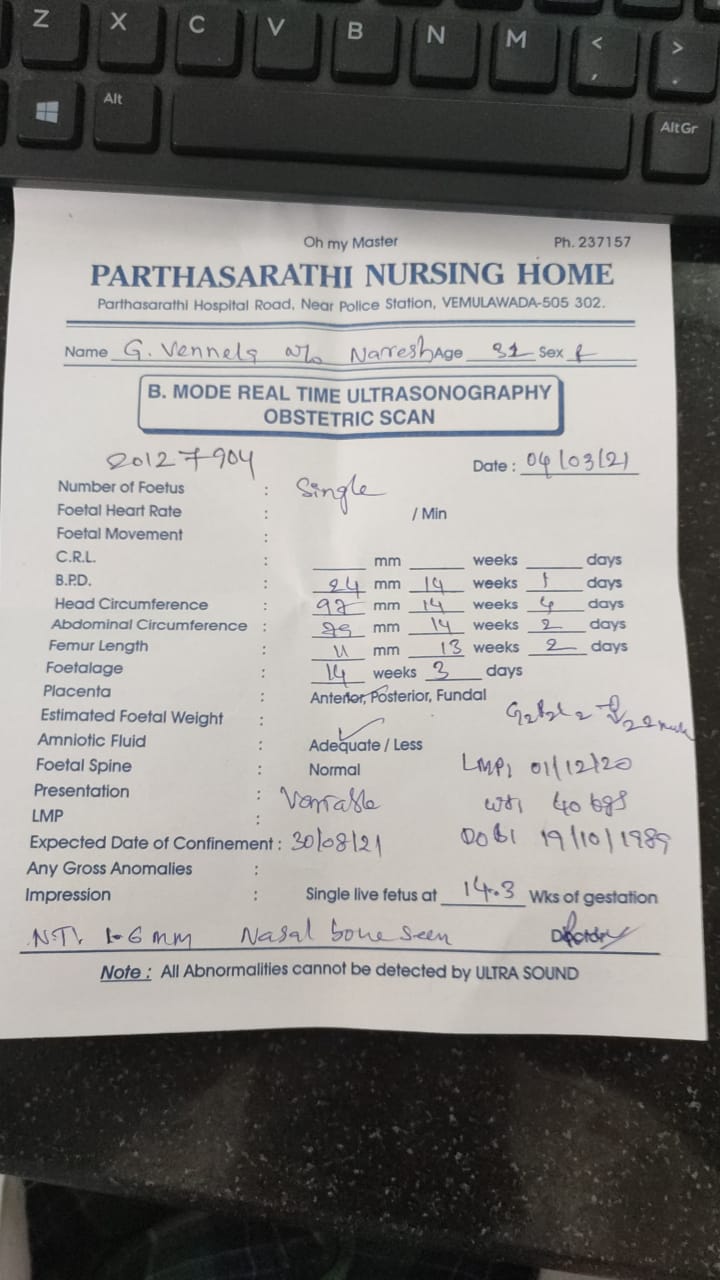 Z X C V B N M < ,  > .
Alt AltGr
Oh my Master Ph. 237157
PARTHASARATHI NURSING HOME
Parthasarathi Hospital Road, Near Police Station, VEMULAWADA-505 302.
Name G. Vennela w/o Naresh Age 31 Sex f
B. MODE REAL TIME ULTRASONOGRAPHY
OBSTETRIC SCAN
20127904 Date : 04/03/21
Number of Foetus : Single
Foetal Heart Rate : / Min
Foetal Movement :
C.R.L. : mm weeks days
B.P.D. : 24 mm 14 weeks 1 days
Head Circumference : 97 mm 14 weeks 4 days
Abdominal Circumference : mm 14 weeks 2 days
Femur Length : 11 mm 13 weeks 2 days
Foetalage : 14 weeks 3 days
Placenta : Anterior, Posterior, Fundal
Estimated Foetal Weight :
Amniotic Fluid : Adequate / Less
Foetal Spine : Normal LMP, 01/12/20
Presentation : Variable wt, 40 kgs
LMP :
Expected Date of Confinement : 30/08/21 DOB 19/10/1989
Any Gross Anomalies :
Impression : Single live fetus at 14.3 Wks of gestation
N.T. 1.6 mm Nasal bone seen Doctor
Note : All Abnormalities cannot be detected by ULTRA SOUND